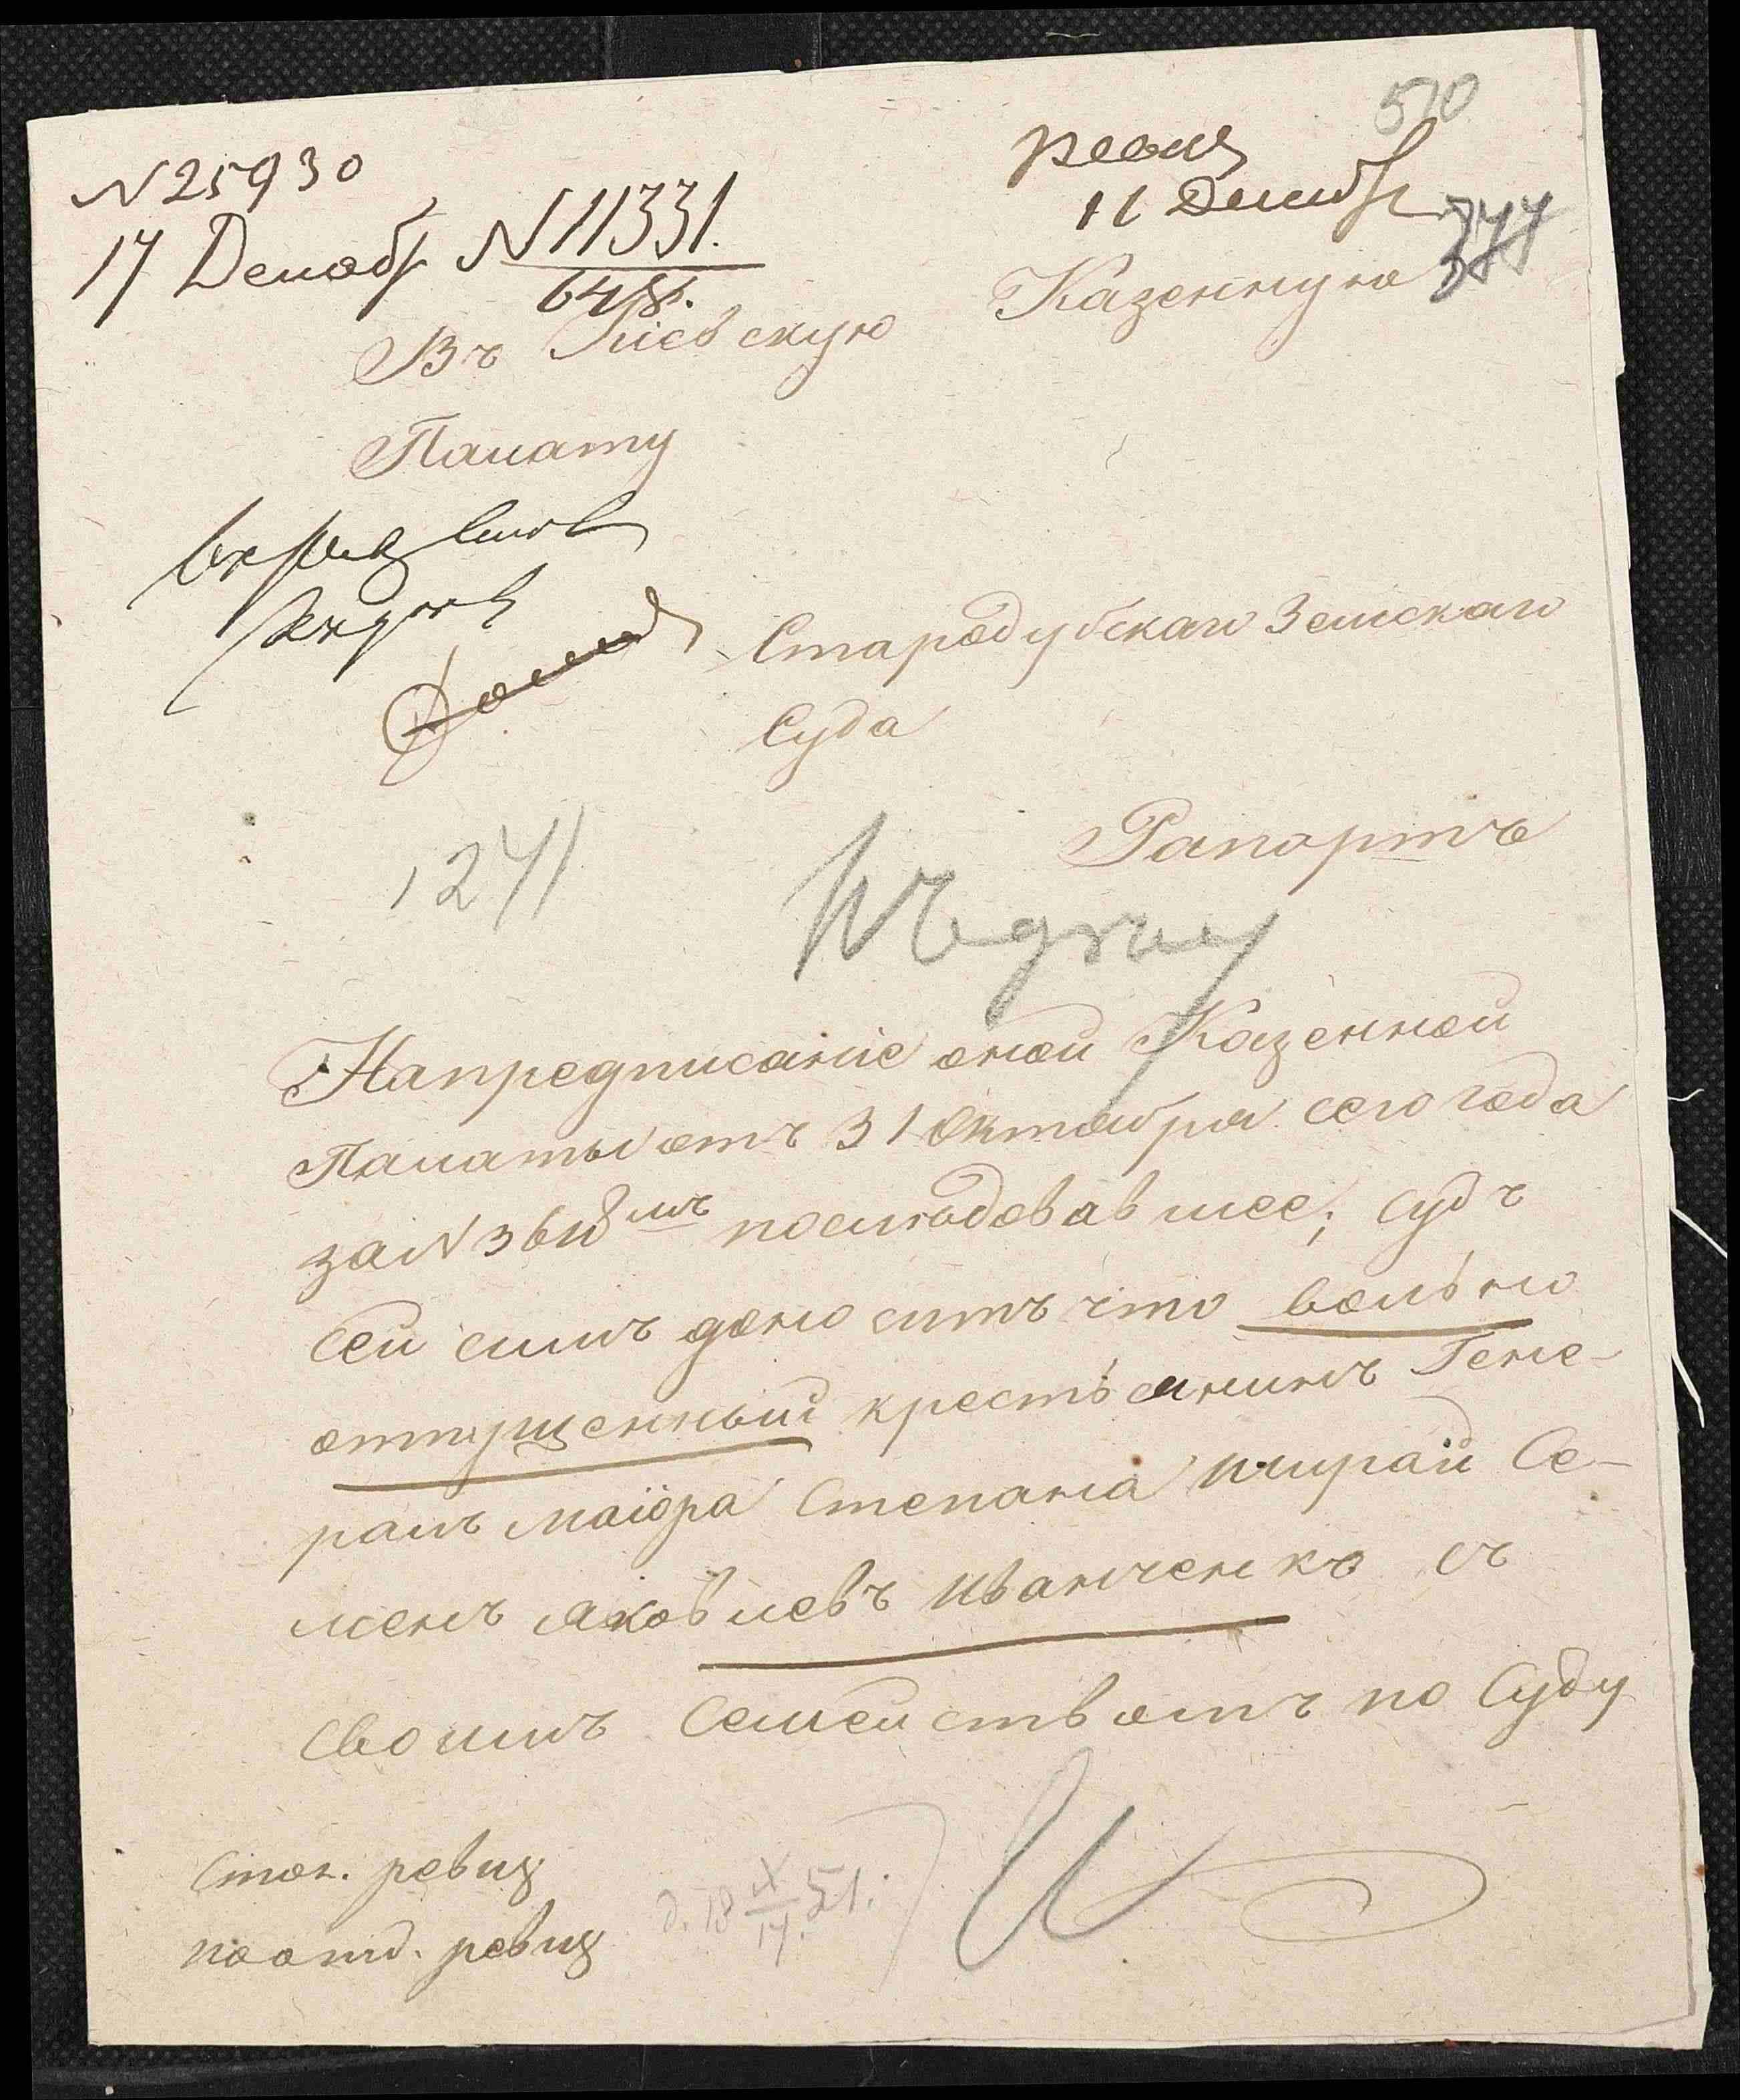 570
N 25930
17 Декабр
N 11331.
11 Декабр
377
Въ Кіевскую Казенную
Палату
Стародубскаго Земскаго
Суда
Рапортъ
1241
Къ делу
Напредписаніе оной Казенной
Палаты отъ 31 октября сего года
за N последовавшее; судъ
сей симъ доноситъ что вольно
отпущенный крестьянинъ Гене-
ралъ маіора Степана Ширай Се-
менъ яковлевъ иванченко съ
своимъ Семействомъ по Суду
Стол. ревиз
по отд. ревиз